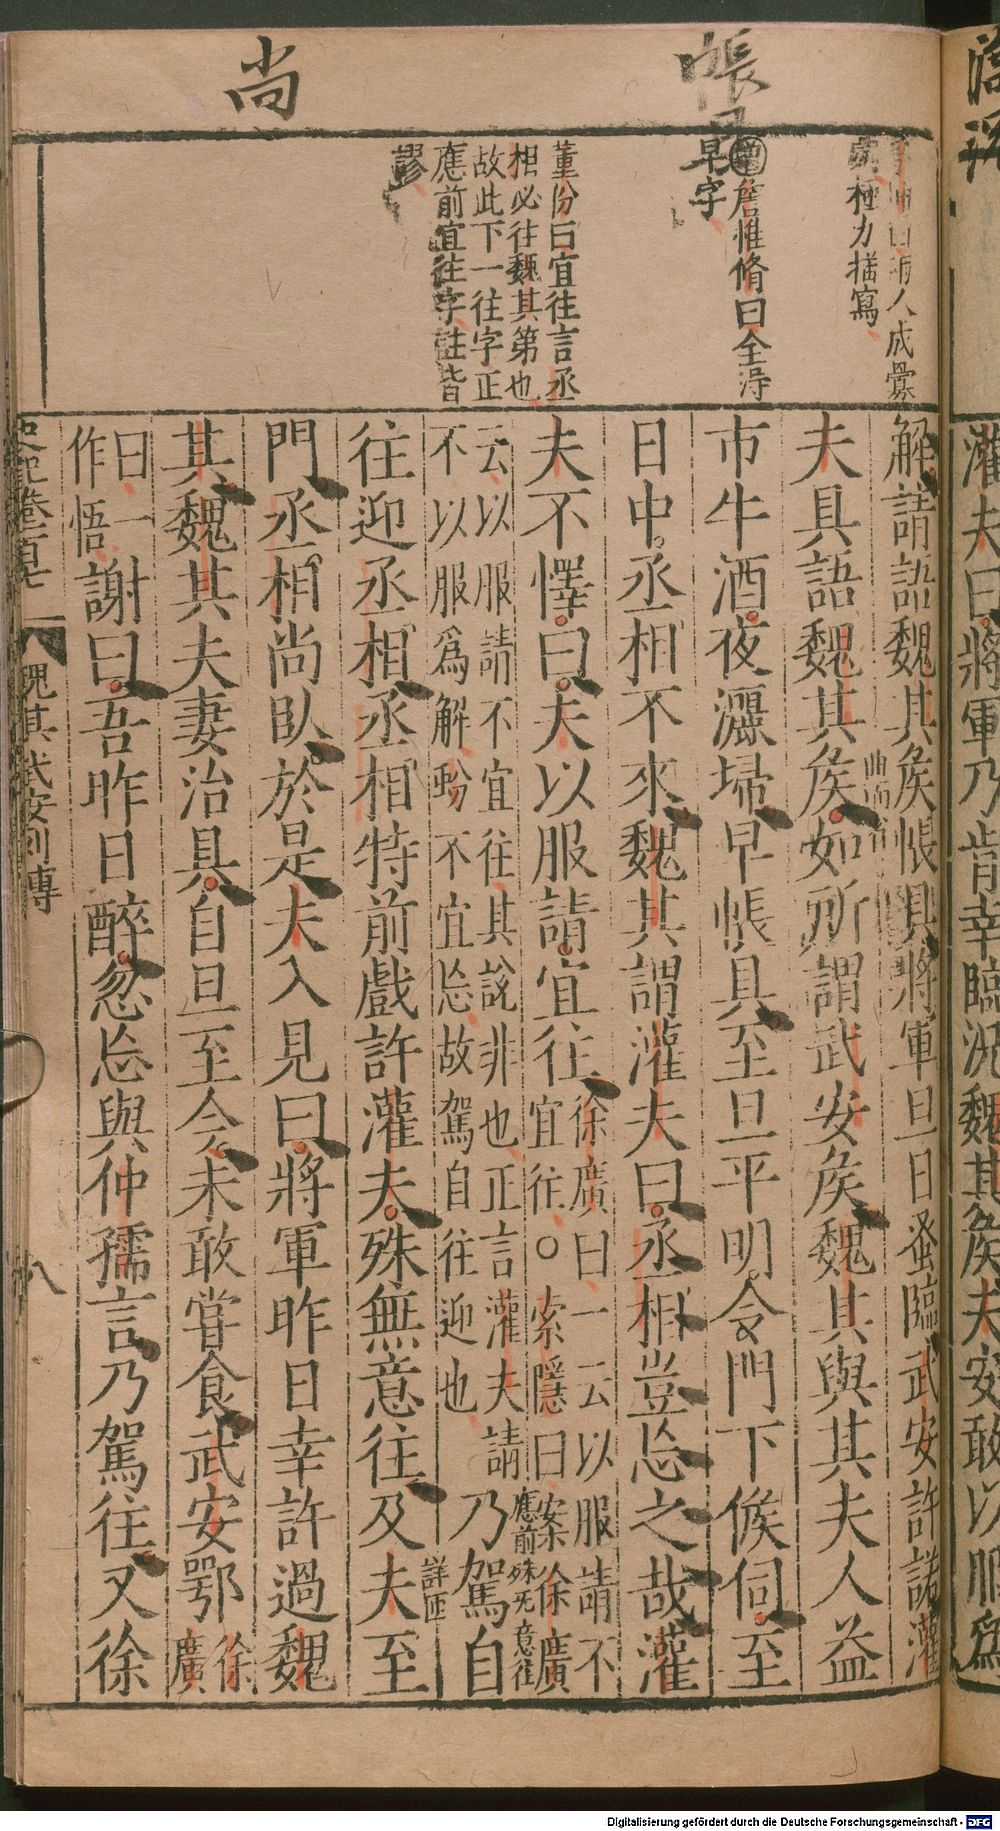 帳
尚
極力描寫
詹惟脩曰全淂
早字
董份曰宜往言丞
相必往魏其第也
故此下一往字正
應前宜往字註皆
謬
解請語魏其侯帳具將軍旦日蚤臨武安許諾灌
夫具語魏其侯如所謂武安侯魏其與其夫人益
市牛酒夜灑埽早帳具至旦平明令門下候伺至
日中丞相不來魏其謂灌夫曰丞相豈忘之哉灌
夫不懌曰夫以服請宜往徐廣曰一云以服請不
宜往○索隱曰案徐廣
云以服請不宜往其說非也正言灌夫請
不以服爲解蚡不宜忘故駕自往迎也
乃駕自
往迎丞相丞相特前戲許灌夫殊無意往及夫至
應前殊无意往
詳匝
門丞相尚臥於是夫入見曰將軍昨日幸許過魏
其魏其夫妻治具自旦至今未敢嘗食武安鄂徐
廣
曰一
作悟
謝曰吾昨日醉忽忘與仲孺言乃駕往又徐
魏其武安列傳
八
灌夫曰將軍乃肯幸臨況魏其侯夫安敢以服爲
Digitalisierung gefördert durch die Deutsche Forschungsgemeinschaft - DFG